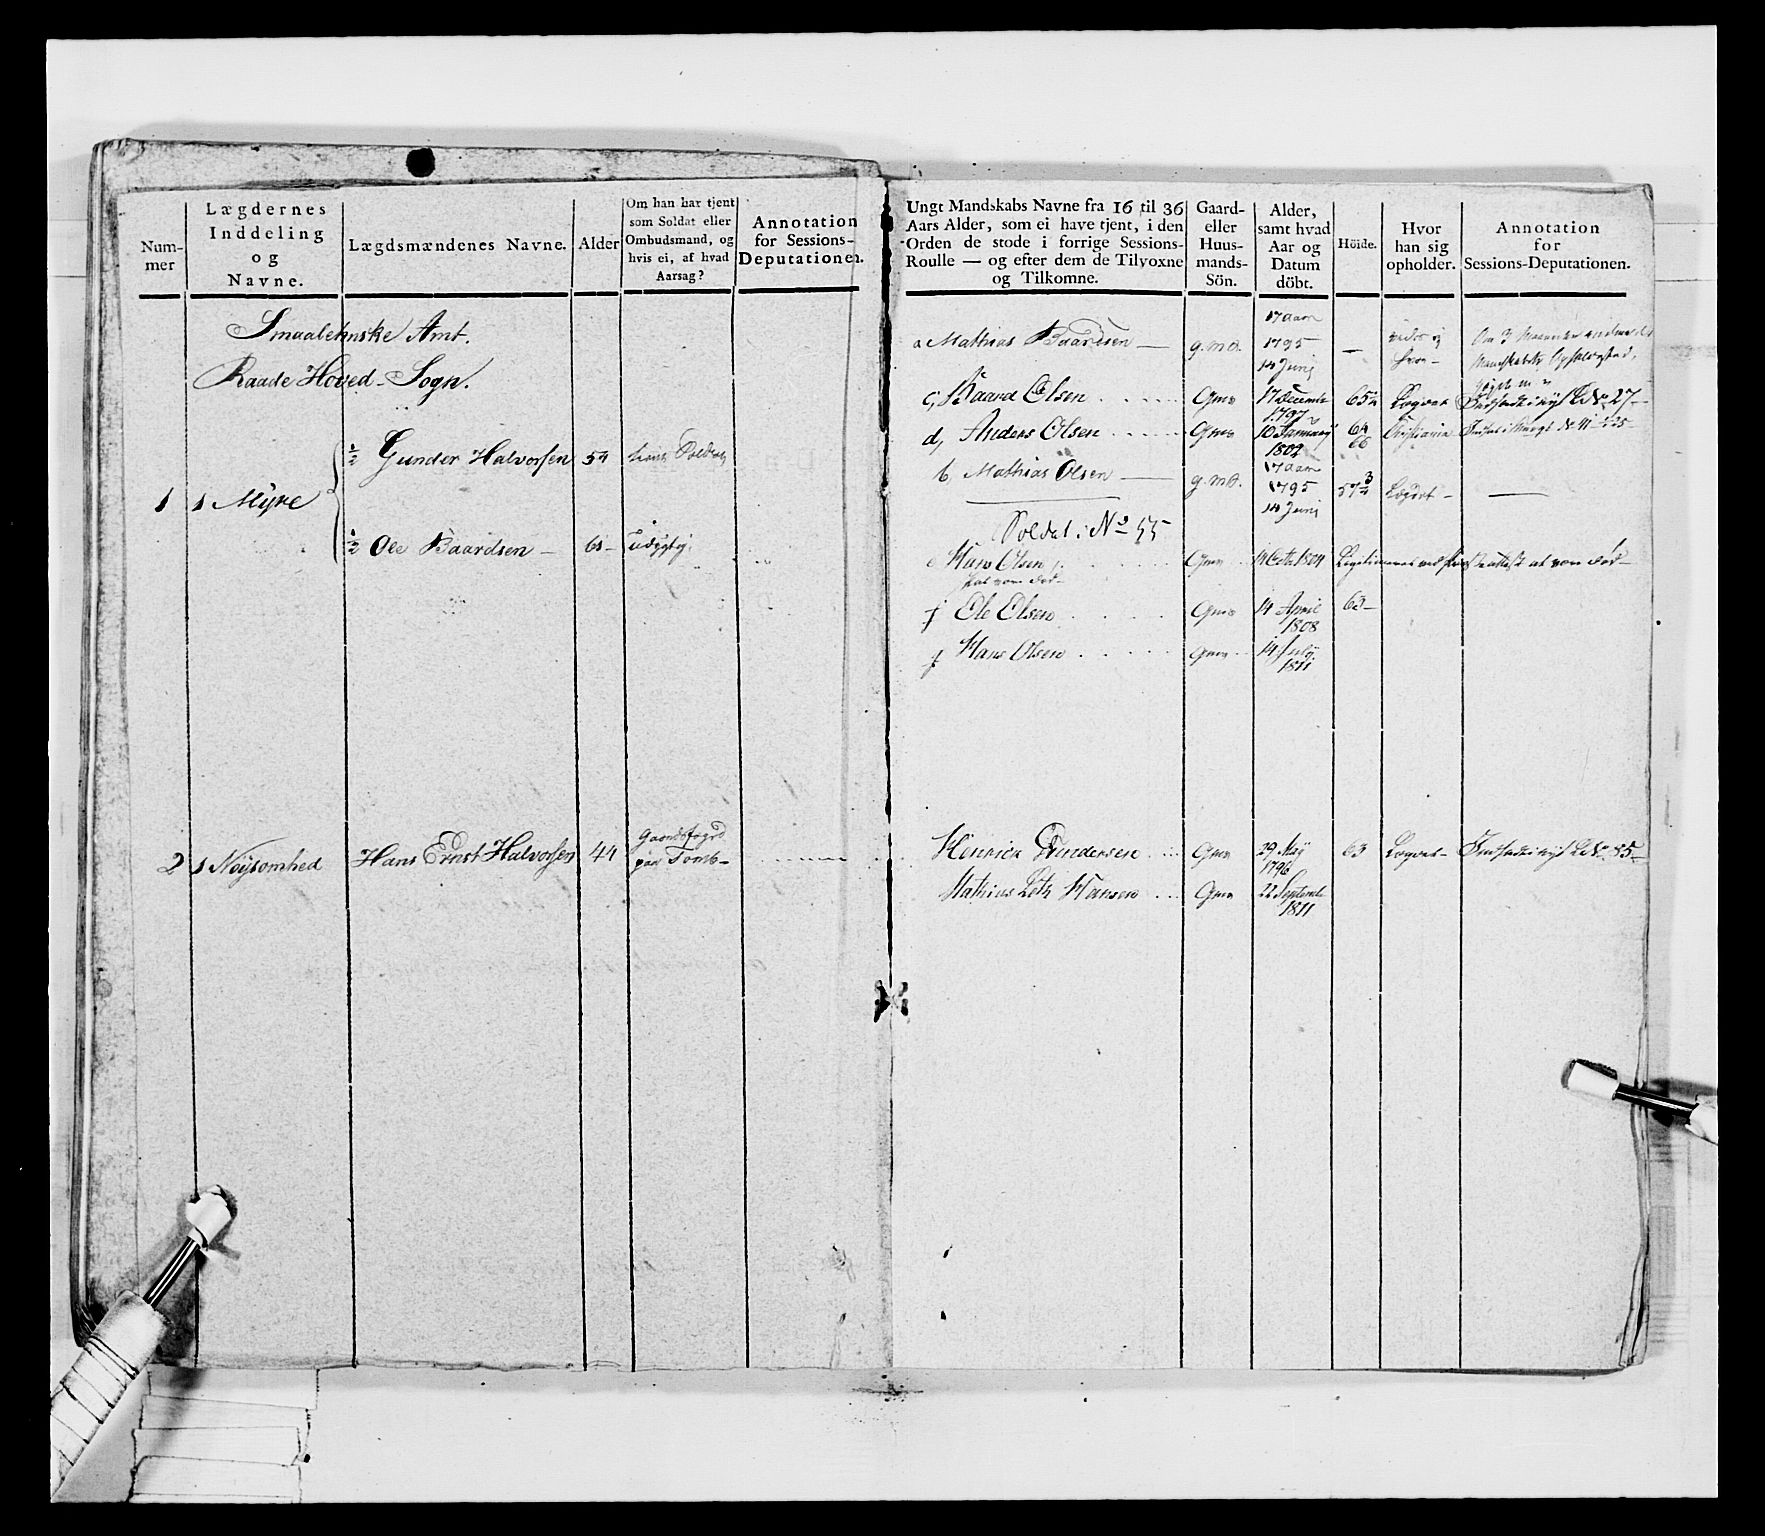 Num-
mer
Lægdernes
Inddeling
og
Navne.
Lægdsmændenes Navne.
Alder
Om han har tjent
som Soldat eller
Ombudsmand, og
hvis ei, af hvad
Aarsag?
Annotation
for Sessions-
Deputationen.
Smaalehnske Amt.
Raade Hoved-Sogn.
1 1 Myre
1/2 Gunder Halvorsen 54 Soldat
1/2 Ole Baardsen — 61 — udygtig.
2 1 Nøysomhed Hans Ernst Halvorsen 44
Gaardsfoged
paa Tomb-
Ungt Mandskabs Navne fra 16 til 36
Aars Alder, som ei have tjent, i den
Orden de stode i forrige Sessions-
Roulle — og efter dem de Tilvoxne
og Tilkomne.
Gaard-
eller
Huus-
mands-
Sön.
Alder,
samt hvad
Aar og
Datum
döbt.
Höide.
Hvor
han sig
opholder.
Annotation
for
Sessions-Deputationen.
a Mathias Baardsen — g.m.s. 17 aar
1795 —
14 Junj
c, Baard Olsen Gms 17 Decembr 65½ Lægdet No 27—
1797
d, Anders Olsen Gms 10 Januarij 64 Cristiania
1802 66
b, Mathias Olsen — g.m.s. 17 aar
1795 57¾ Lægdet — —
14 Junj
Soldat i No 55
e Hans Olsen Gms 1804 Legitimeret ved Præste attest at være død—
skal være død—
f Ole Olsen Gms 14 April 63—
1808
f Hans Olsen Gms 14 July
1811
Henrich Gundersen Gms 29 May 63 Lægdet— No 85—
1796
Mathias Hansen Gms 22 Septembr
1811